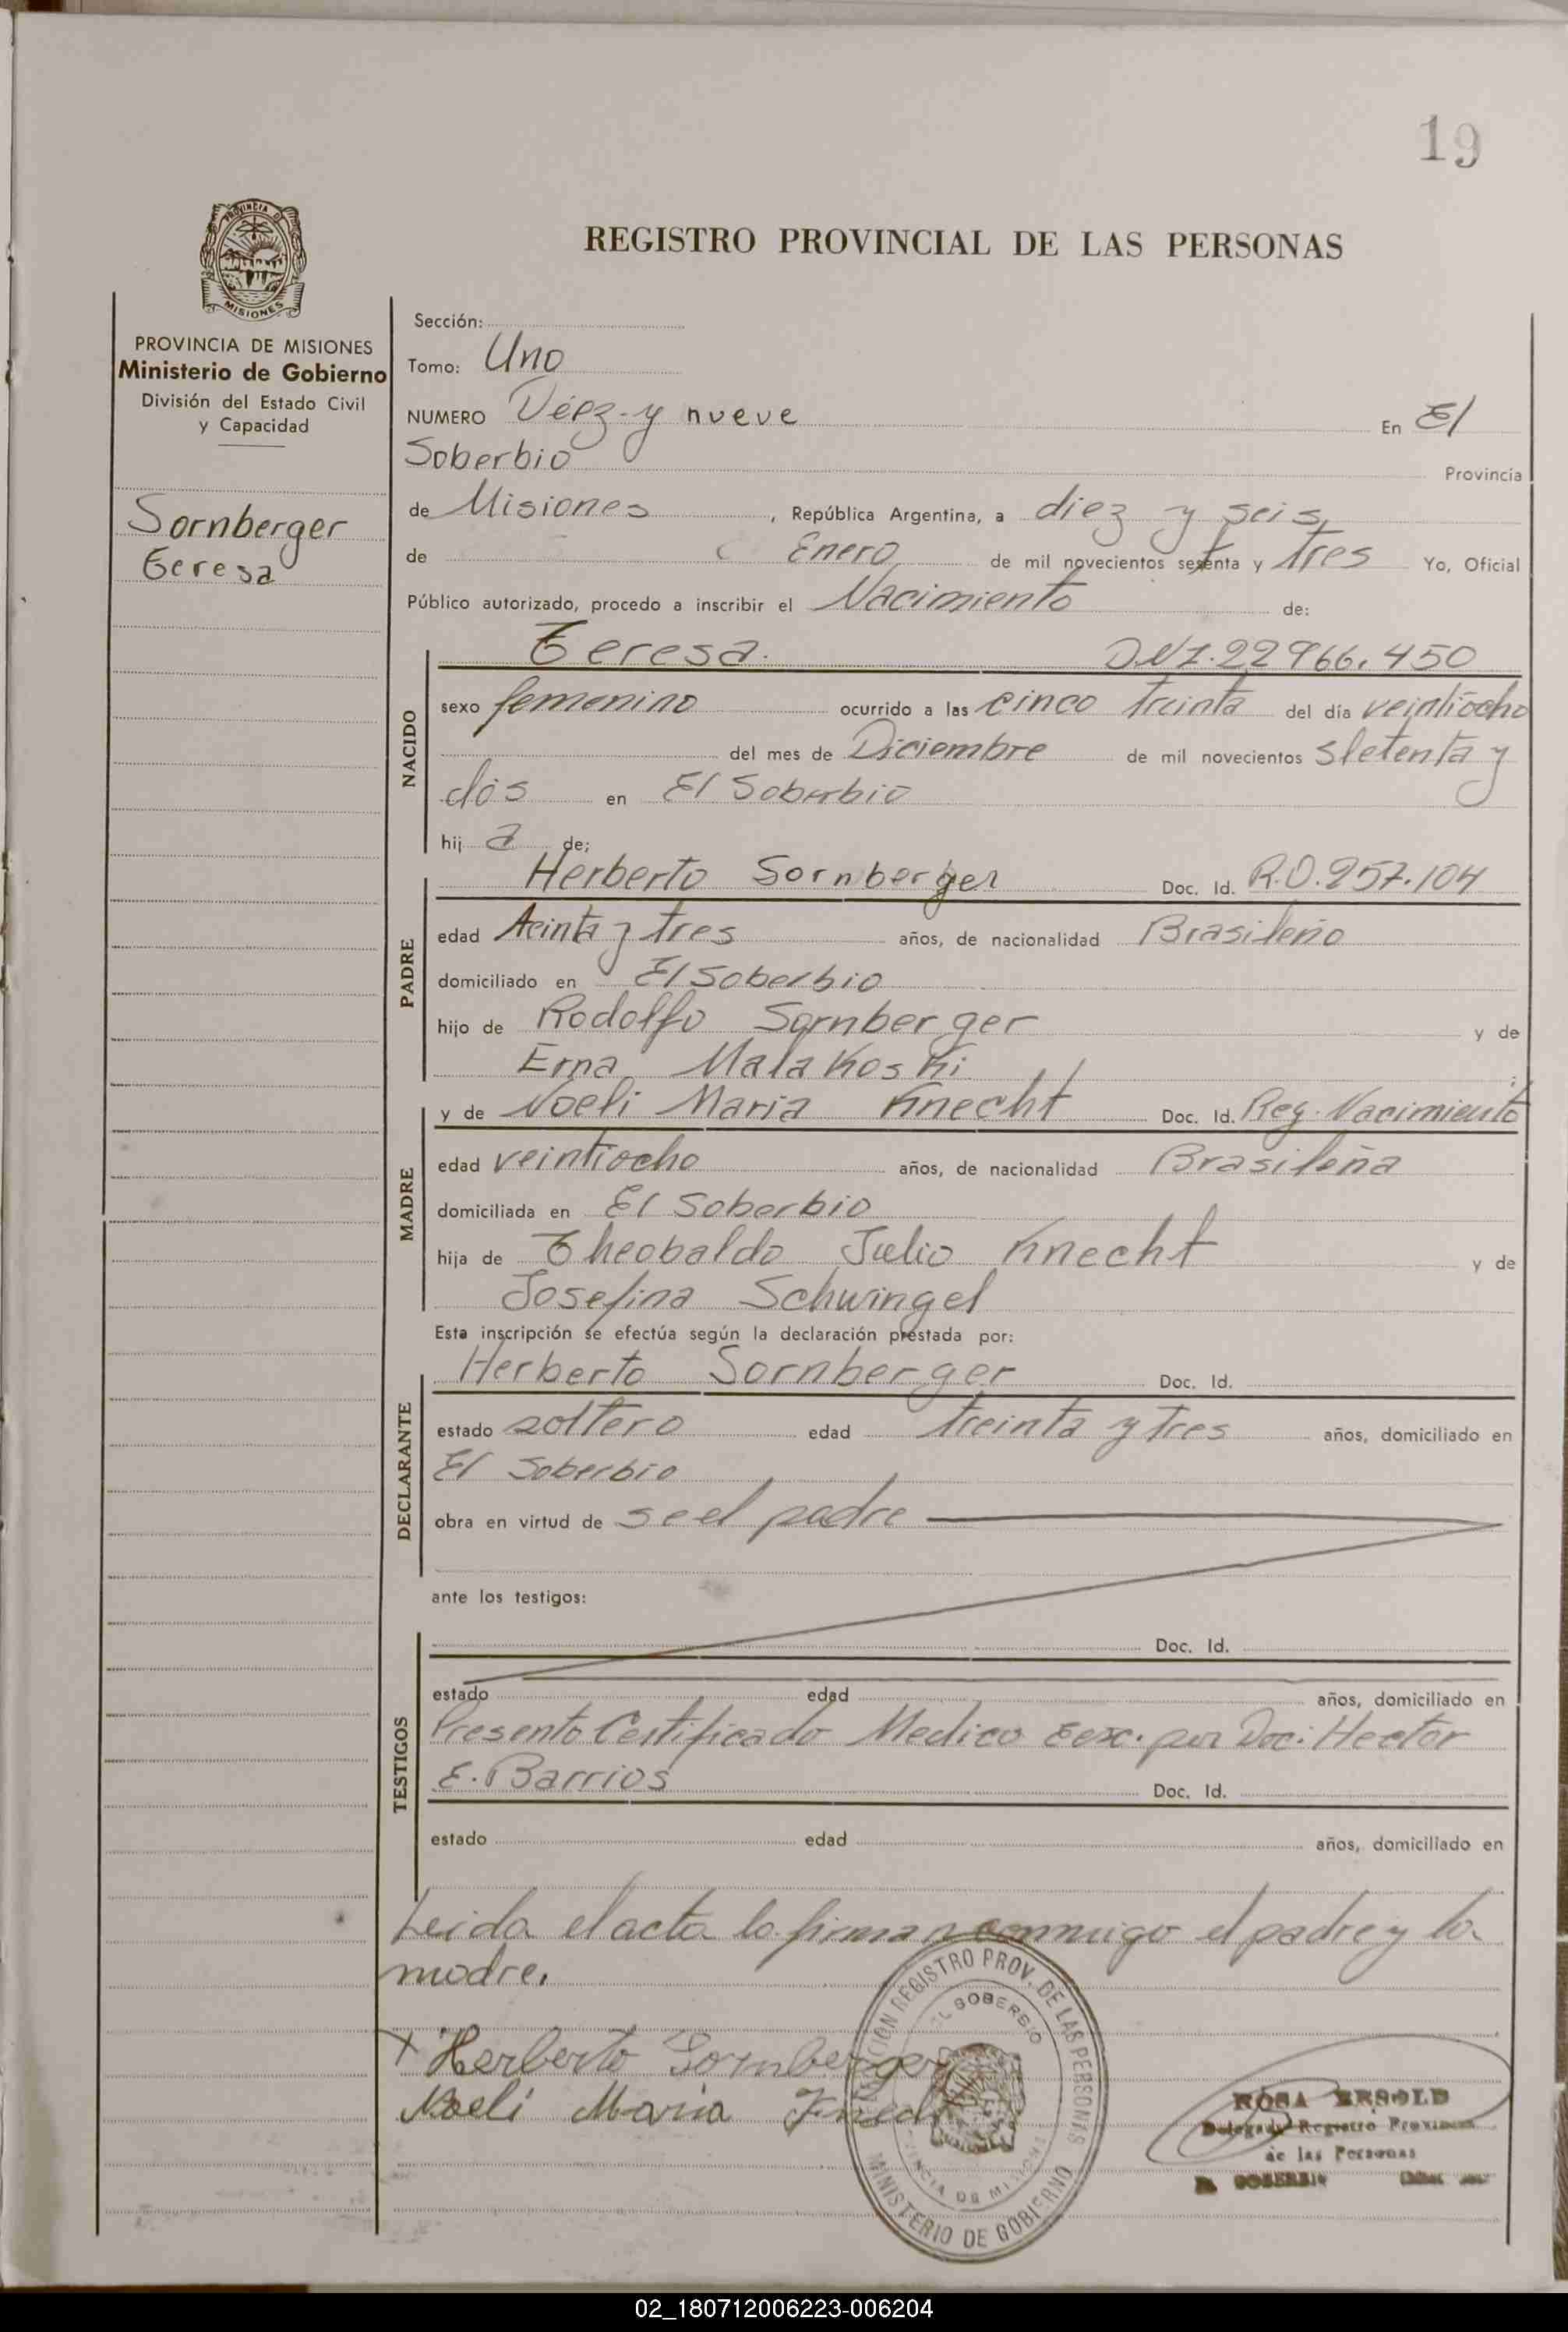 19
PROVINCIA DE
MISIONES
REGISTRO PROVINCIAL DE LAS PERSONAS
PROVINCIA DE MISIONES
Ministerio de Gobierno
División del Estado Civil
y Capacidad
Sornberger
Teresa
Sección:
Tomo: Uno
NUMERO Diez y nueve En El
Soberbio Provincia
de Misiones, República Argentina, a diez y seis
de Enero de mil novecientos setenta y tres Yo, Oficial
Público autorizado, procedo a inscribir el Nacimiento de:
NACIDO
Teresa. DNI.22966.450
sexo femenino ocurrido a las cinco treinta del día veintiocho
del mes de Diciembre de mil novecientos setenta y
dos en El Soberbio
hija de;
PADRE
Herberto Sornberger Doc. Id. R.O.957.104
edad treinta y tres años, de nacionalidad Brasileño
domiciliado en El Soberbio
hijo de Rodolfo Sornberger y de
Erna Malakoski
MADRE
y de Noeli Maria Knecht Doc. Id. Reg. Nacimiento
edad veintiocho años, de nacionalidad Brasileña
domiciliada en El Soberbio
hija de Theobaldo Julio Knecht y de
Josefina Schwingel
Esta inscripción se efectúa según la declaración prestada por:
DECLARANTE
Herberto Sornberger Doc. Id.
estado soltero edad treinta y tres años, domiciliado en
El Soberbio
obra en virtud de se el padre
ante los testigos:
TESTIGOS
Doc. Id.
estado edad años, domiciliado en
Presento Certificado Medico por Doc: Hector
E. Barrios Doc. Id.
estado edad años, domiciliado en
Leida el acta la firman conmigo el padre y la
madre.
x Herberto Sornberger
Noeli Maria Knecht
REGISTRO PROV. DE LAS PERSONAS
EL SOBERBIO
PROVINCIA DE MISIONES
MINISTERIO DE GOBIERNO
ROSA
Delegada Registro Provincial
de las Personas
EL SOBERBIO
02_180712006223-006204